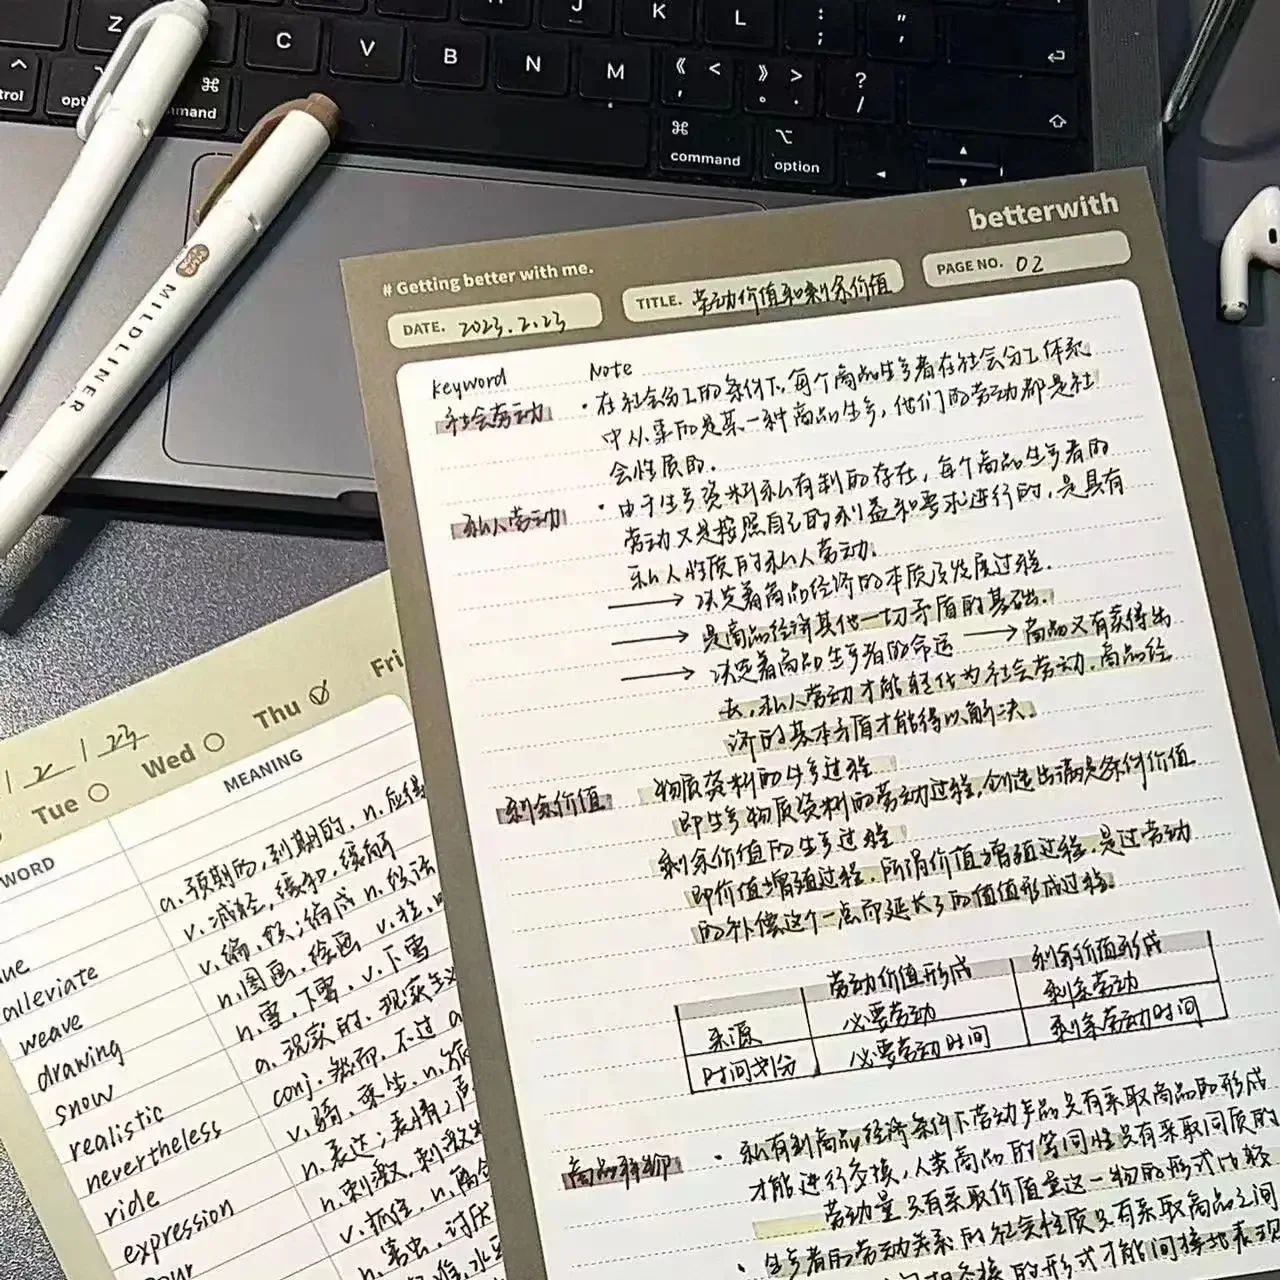 Z C V B N M J K L : ; " ,
control option command 《 < , 》 > 。 . ? /
command option
MILDLINER
betterwith
# Getting better with me.
DATE. 2023.2.23 TITLE. 劳动价值和剩余价值 PAGE NO. 02
keyword Note
社会劳动 · 在社会分工的条件下,每个商品生产者在社会分工体系
中从事的是某一种商品生产,他们的劳动都是社
会性质的.
私人劳动 · 由于生产资料私有制的存在,每个商品生产者的
劳动又是按照自己的利益和要求进行的,是具有
私人性质的私人劳动.
→ 决定着商品经济的本质及发展过程.
→ 是商品经济其他一切矛盾的基础.
→ 决定着商品生产者的命运 → 商品又有卖得出
去,私人劳动才能转化为社会劳动.商品经
济的基本矛盾才能得以解决。
剩余价值 物质资料的生产过程
即生产物质资料的劳动过程,创造出满足条件价值
剩余价值的生产过程
即价值增殖过程.所谓价值增殖过程,是过劳动
的补偿这个一点而延长了的价值形成过程.
劳动价值形成 剩余价值形成
来源 必要劳动 剩余劳动
时间划分 必要劳动时间 剩余劳动时间
商品 · 私有制商品经济条件下劳动产品只有采取商品的形式
才能进行交换,人类商品的等同性只有采取同质的
劳动量只有采取价值量这一物的形式比较
· 生产者的劳动关系的社会性质只有采取商品之间
交换的形式才能间接地表现
2 / 23
Tue Wed Thu Fri
WORD MEANING
a.预期的,到期的. n.应得
alleviate v.减轻,缓和,缓解
weave v.编,织;编成 n.织法
drawing n.图画,绘画 v.拉
snow n.雪,下雪. v.下雪
realistic a.现实的,现实主义
nevertheless conj.然而,不过
ride v.骑,乘坐. n.旅
expression n.表达;表情;
n.刺激,刺激
v.抓住. n.
n.害虫,讨厌